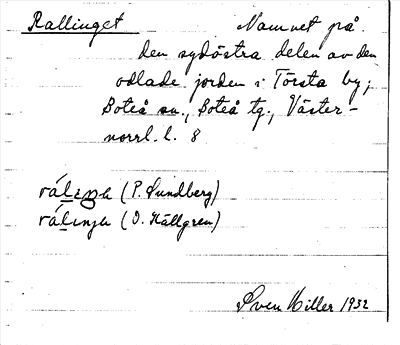 Rallinget Namnet på
den sydöstra delen av den
odlade jorden i Törsta by;
Boteå sn., Boteå tg., Väster-
norrl. l. 8
rálinga (P. Sundberg)
rálinja (O. Hällgren)
Sven Hiller 1932